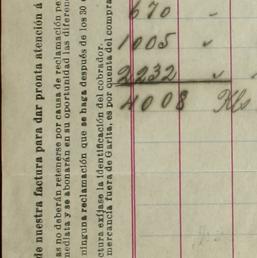 de nuestra factura para dar pronta atención á
as no deberán retenerse por causa de reclamación pe
mediata y se abonarán en su oportunidad las diferen
ninguna reclamación que se haga después de los 30 d
ctura exijase la identificación del cobrador.
mercancía fuera de Garita, es por cuenta del compra
670 "
1005 "
2232 "
4008 Kls